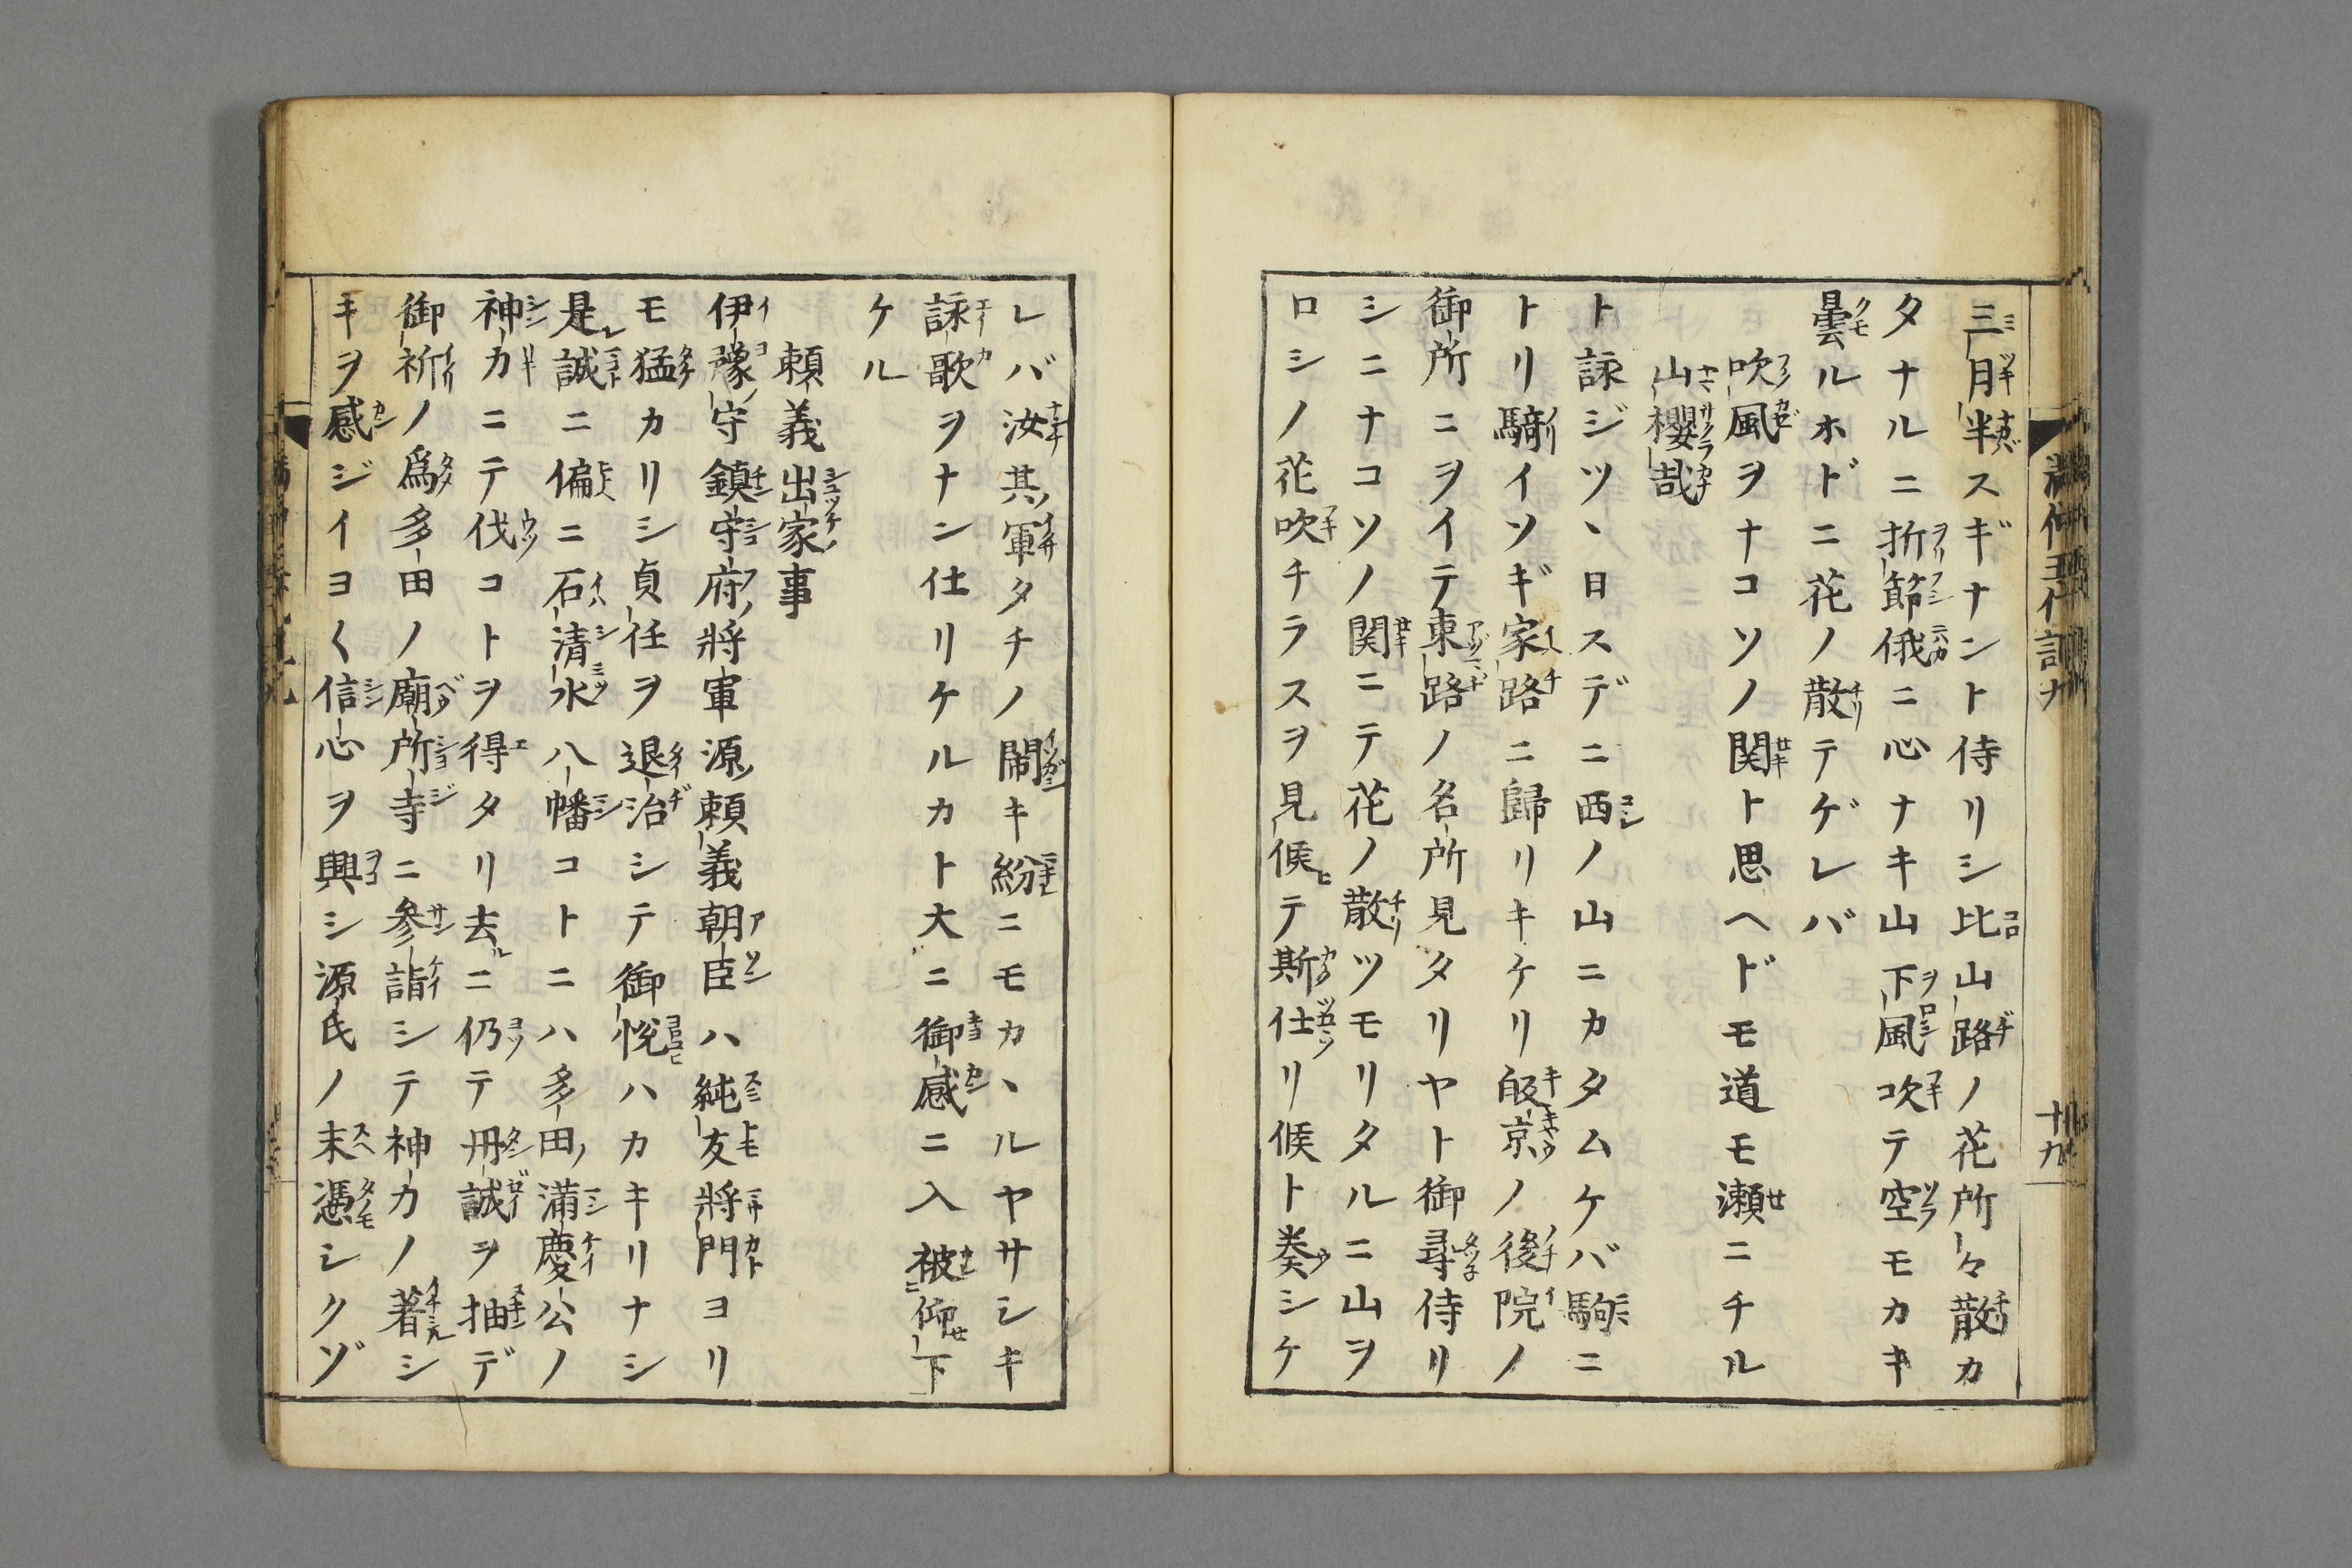 三月半スギナント侍リシ比山路ノ花所々散カ
タナルニ折節俄ニ心ナキ山下風吹テ空モカキ
曇ルホドニ花ノ散テゲレバ
吹風ヲナコソノ関ト思ヘドモ道モ瀬ニチル
山櫻哉
ト詠ジツヽ日スデニ西ノ山ニカタムケバ駒ニ
トリ騎イソギ家路ニ歸リキケリ皈京ノ後院ノ
御所ニヲイテ東路ノ名所見タリヤト御尋侍リ
シニナコソノ関ニテ花ノ散ツモリタルニ山ヲ
ロシノ花吹チラスヲ見候テ斯仕リ候ト奏シケ
レバ汝其軍タチノ鬧キ紛ニモカヽルヤサシキ
詠歌ヲナシ仕リケルカト大ニ御感ニ入被仰下
ケル
頼義出家事
伊豫守鎮守府將軍源頼義朝臣ハ純友將門ヨリ
モ猛カリシ貞任ヲ退治シテ御悦ハカキリナシ
是誠ニ偏ニ石清水八幡コトニハ多田満慶公ノ
神力ニテ伐コトヲ得タリ去ニ仍テ丹誠ヲ抽デ
御祈ノ爲多田ノ廟所寺ニ参詣シテ神力ノ著シ
キヲ感ジイヨく信心ヲ興シ源氏ノ末憑シクゾ
十九